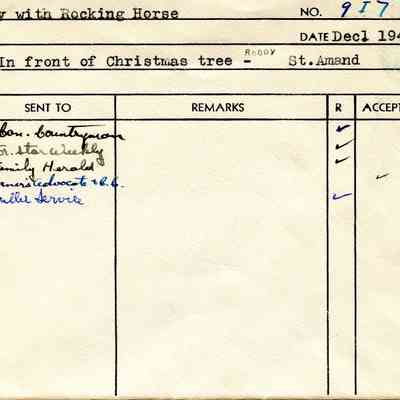 y with Rocking Horse NO. 917
DATE Dec1 194
Roddy
In front of Christmas tree - St.Amand
SENT TO REMARKS R ACCEPT
Can. Countryman ✓
Star Weekly ✓
amily Herald ✓
mer's Advocate & C.G. ✓
Service ✓